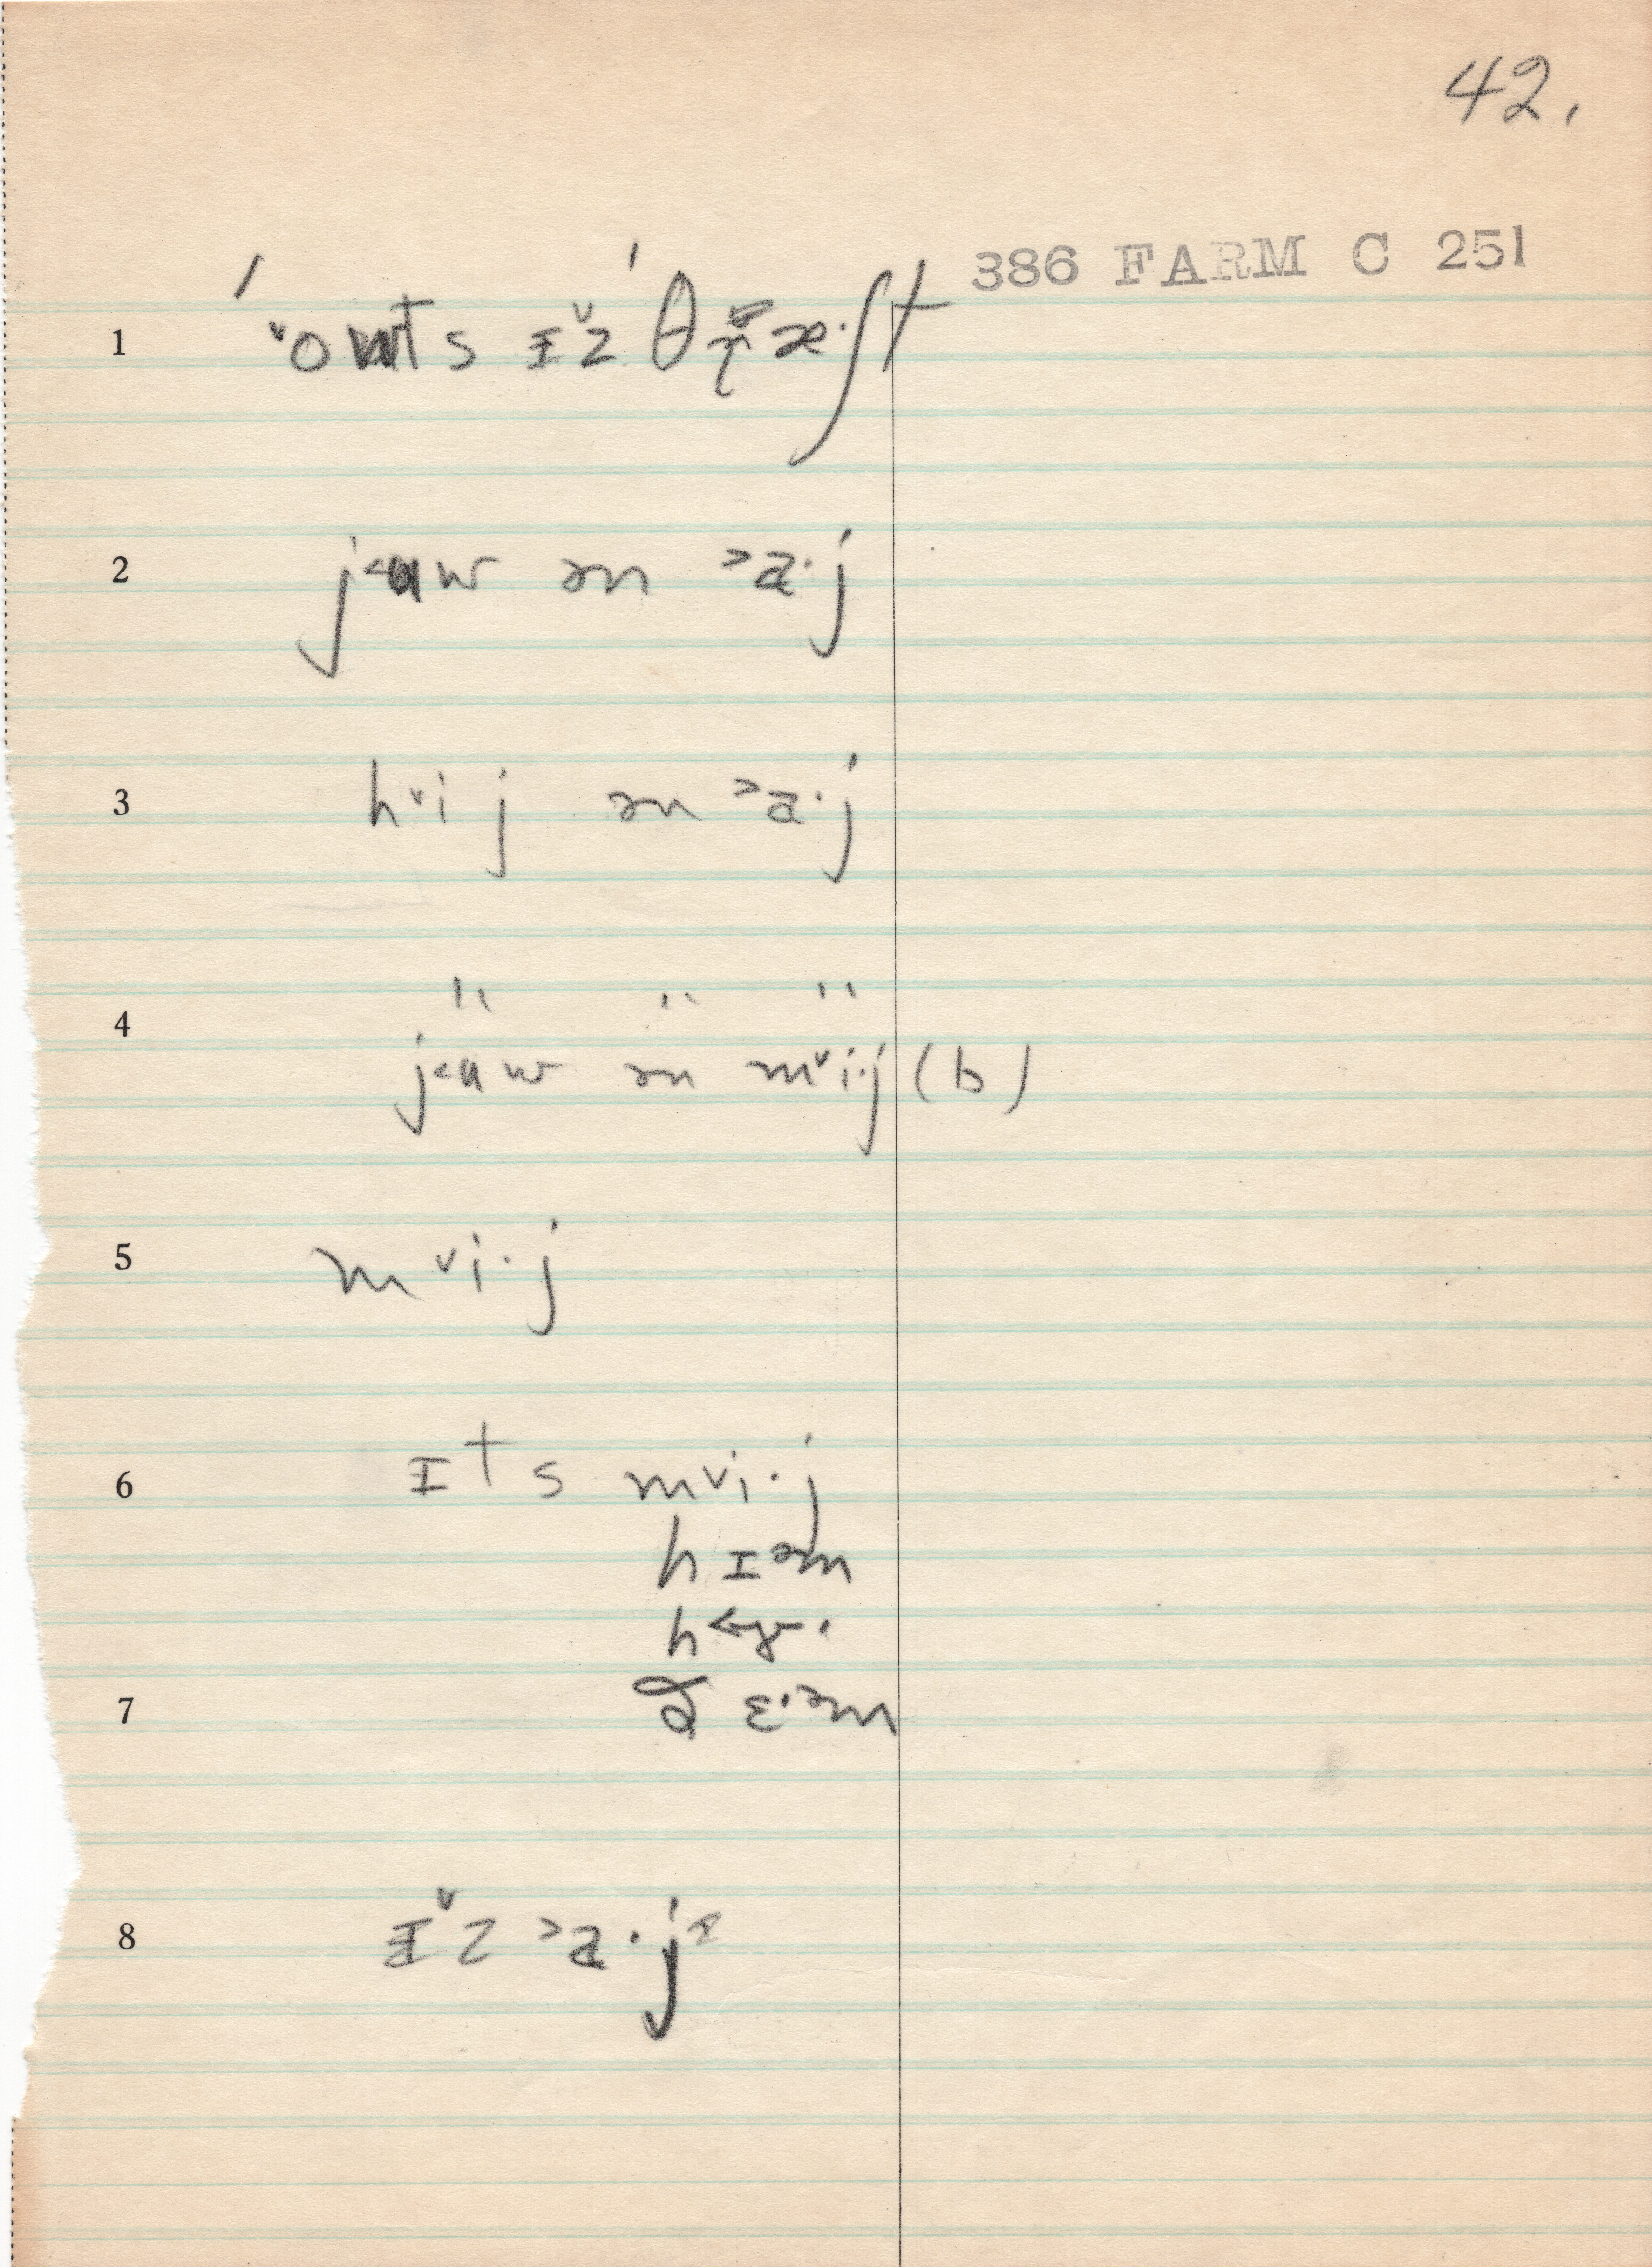 42.
386 FARM C 251
1 ˈ ˅o wts ɪ˅z ˈθɾ̥æ·ʃt
2 j˂ɑw ən ˃a·j
3 h˅ij ən ˃a·j
4 " " "
j˂ɑw ən m˅i·j (b)
5 m˅i·j
6 ɪts m˅i·j
hɪəm
h˂ɚ·
7 ð ɛ·əm
8 ɪ˅z ˃a·jᶻ